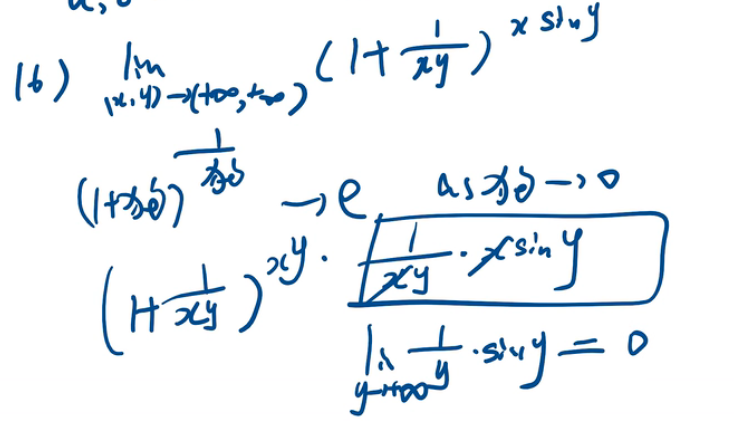 (6) lim (x,y)→(+∞,+∞) (1+1/(xy))^(x sin y)
(1+汤)^(1/汤) → e as 汤→0
(1+1/(xy))^(xy · 1/(xy) · x sin y)
lim y→+∞ 1/y · sin y = 0